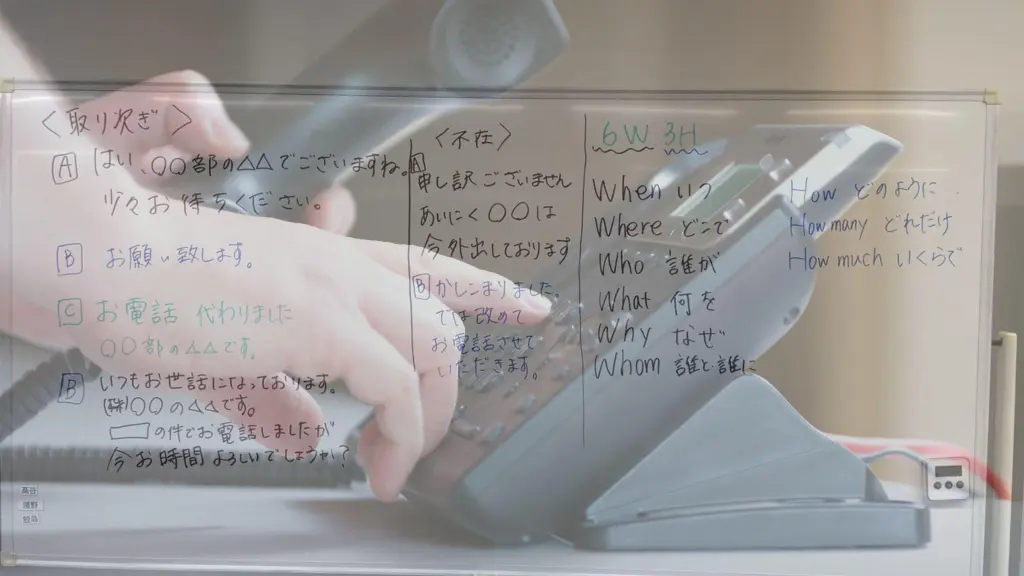 〈取り次ぎ〉
A はい、〇〇部の△△でございますね。
少々お待ちください。
B お願い致します。
C お電話 代わりました
〇〇部の△△です。
B いつもお世話になっております。
(株)〇〇の△△です。
の件でお電話しましたが
今お時間よろしいでしょうか?
〈不在〉
A
申し訳ございません
あいにく〇〇は
今外出しております
B かしこまりました、
では改めて
お電話させて
いただきます。
6W 3H
When いつ
Where どこで
Who 誰が
What 何を
Why なぜ
Whom 誰と・誰に
How どのように
How many どれだけ
How much いくらで